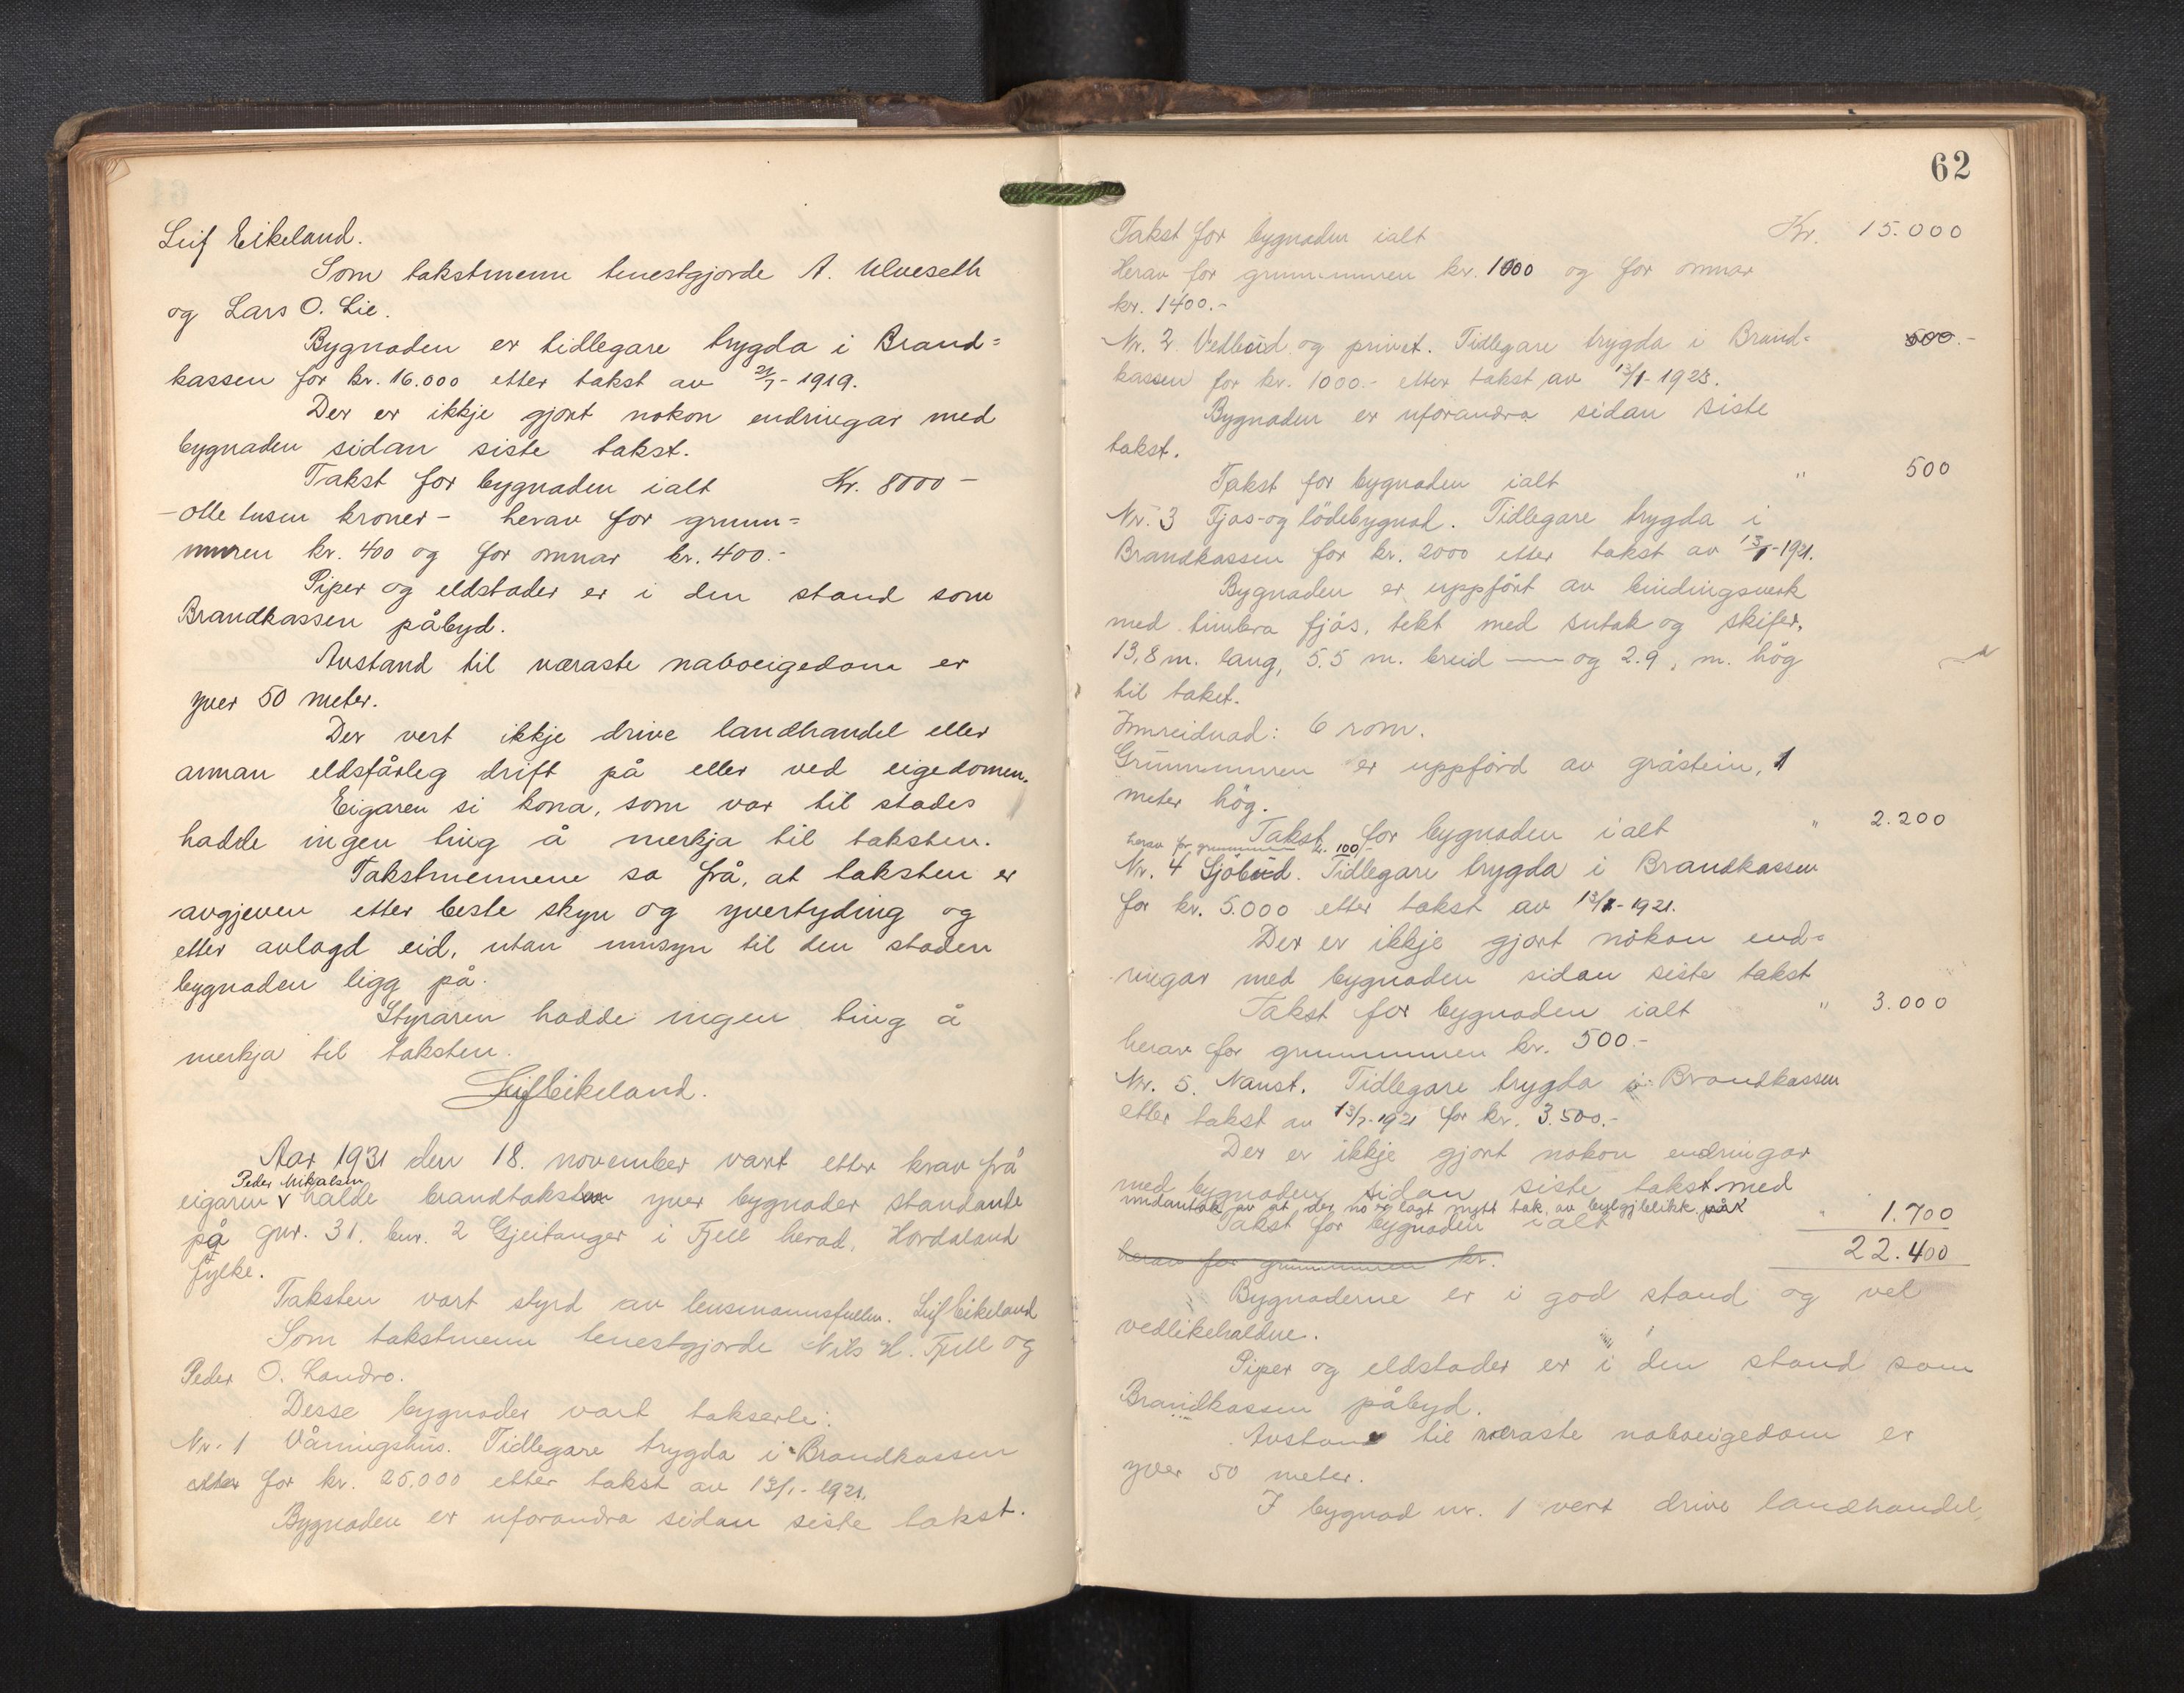 Leif Eikeland.
Som takstmenn tenestgjorde A. Ulveseth
og Lars O. Lie.
Bygnaden er tidlegare trygda i Brand-
kassen for kr. 16.000 etter takst av 21/7-1919.
Der er ikkje gjort nokon endringar med
bygnaden sidan siste takst.
Takst for bygnaden ialt Kr. 8000 -
- otte tusen kroner - herav for grunn-
muren kr. 400 og for omnar kr. 400.-
Piper og eldstader er i den stand som
Brandkassen påbyd.
Avstand til næraste naboeigedom er
yver 50 meter.
Der vert ikkje drive landhandel eller
annan eldsfårleg drift på eller ved eigedomen.
Eigaren si kona, som var til stades
hadde ingen ting å merkja til taksten.
Takstmennene sa frå, at taksten er
avgjeven etter beste skyn og yvertyding og
etter avlagd eid, utan umsyn til den staden
bygnaden ligg på.
Styraren hadde ingen ting å
merkja til taksten.
Leif Eikeland.
Aar 1931 den 18. november vart etter krav frå
Peder Mikalsen
eigaren v halde brandtakst yver bygnader standande
på gnr. 31. bnr. 2 Gjeitanger i Fjell herad, Hordaland
fylke.
Taksten vart styrd av lensmannsfullm. Leif Eikeland
Som takstmenn tenestgjorde Nils H. Fjell og
Peder O. Landro.
Desse bygnader vart takserte:
Nr. 1 Våningshus. Tidlegare trygda i Brandkassen
etter for kr. 25.000 etter takst av 13/1-1921.
Bygnaden er uforandra sidan siste takst.
62
Takst for bygnaden ialt Kr. 15.000
Herav for grunnmuren kr. 1000 og for omnar
kr. 1400.-
Nr. 2 Vedbud og privet. Tidlegare trygda i Brand- 500.-
kassen for kr. 1000.- etter takst av 13/1-1923.
Bygnaden er uforandra sidan siste
takst.
Takst for bygnaden ialt " 500
Nr. 3 Fjos- og lödebygnad. Tidlegare trygda i
Brandkassen for kr. 2000 etter takst av 13/1-1921.
Bygnaden er uppfört av bindingsverk
med timbra fjös, tekt med sutak og skifer,
13,8 m. lang, 5.5 m. breid — og 2.9, m. hög
til taket.
Innreidnad: 6 rom.
Grunnmuren er uppförd av gråstein, 1
meter hög.
Takst for bygnaden ialt " 2.200
herav for grunnmuren kr. 100.-
Nr. 4 Sjöbud. Tidlegare trygda i Brandkassen
for kr. 5.000 etter takst av 13/1-1921.
Der er ikkje gjort nokon end-
ringar med bygnaden sidan siste takst
Takst for bygnaden ialt " 3.000
herav for grunnmuren kr. 500.-
Nr. 5. Naust. Tidlegare trygda i Brandkassen
etter takst av 13/1-1921 for kr. 3.500.-
Der er ikkje gjort nokon endringar
med bygnaden sidan siste takst med
undantak av at der no er lagt nytt tak av bylgjeblikk på
Takst for bygnaden ialt " 1.700
22.400
herav for grunnmuren kr.
Bygnaderne er i god stand og vel
vedlikehaldne.
Piper og eldstader er i den stand som
Brandkassen påbyd.
Avstand til næraste naboeigedom er
yver 50 meter.
I bygnad nr. 1 vert drive landhandel,